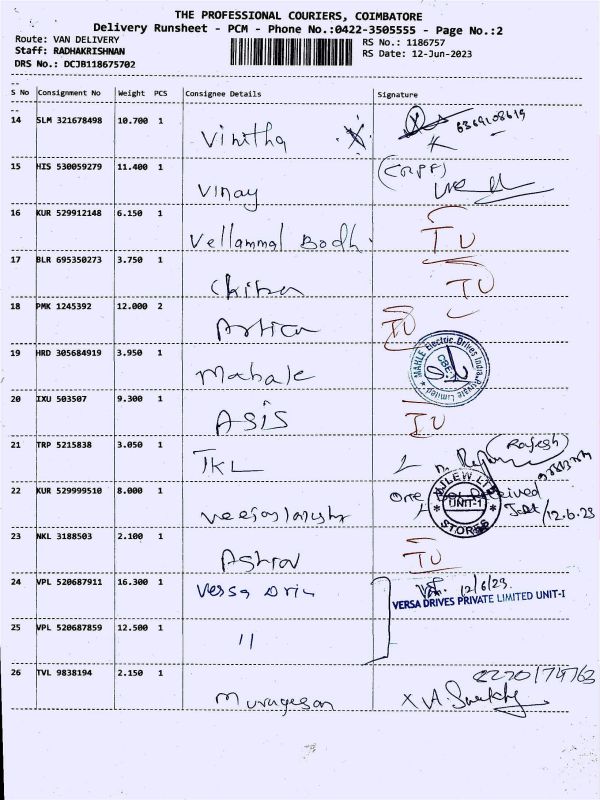 THE PROFESSIONAL COURIERS, COIMBATORE
Delivery Runsheet - PCM - Phone No.:0422-3505555 - Page No.:2
Route: VAN DELIVERY
RS No.: 1186757
Staff: RADHAKRISHNAN
RS Date: 12-Jun-2023
DRS No.: DCJB118675702
S No Consignment No Weight PCS Consignee Details Signature
14 SLM 321678498 10.700 1 Vinitha
15 HIS 530059279 11.400 1 Vinay
16 KUR 529912148 6.150 1 Vellammal Bodh IU
17 BLR 695350273 3.750 1 IU
18 PMK 1245392 12.000 2 IU
19 HRD 305684919 3.950 1 Mahale MAHLE Electric Drives India Private Limited
20 IXU 503507 9.300 1 ASIS IU
21 TRP 5215838 3.050 1 TKL (Rajesh)
22 KUR 529999510 8.000 1 One Received 12.6.23
UNIT-1
STORES
23 NKL 3188503 2.100 1 IU
24 VPL 520687911 16.300 1 Versa Driv 12/6/23
VERSA DRIVES PRIVATE LIMITED UNIT-I
25 VPL 520687859 12.500 1 11
26 TVL 9838194 2.150 1 Murugesan